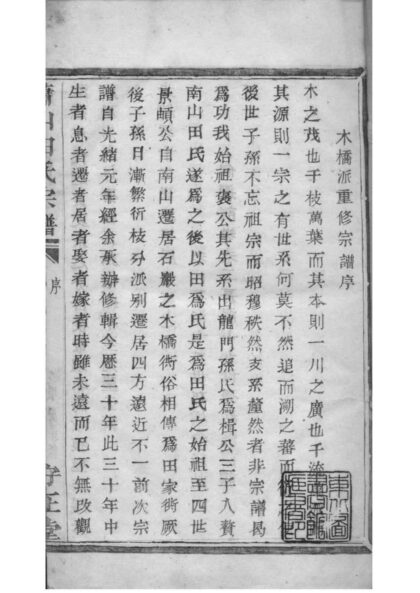 木橋派重修宗譜序
木之茂也千枝萬葉而其本則一川之廣也千流
其源則一宗之有世系何莫不然追而溯之蕃而
後世子孫不忘祖宗而昭穆秩然支系釐然者非宗譜曷
爲功我始祖襃公其先系出龍門孫氏爲楫公三子入贅
南山田氏遂爲之後以田爲氏是爲田氏之始祖至四世
景頔公自南山遷居石巖之木橋衖俗相傳爲田家衖厥
後子孫日漸繁衍枝分派別遷居四方遠近不一前次宗
譜自光緒元年經余承辦修輯今歷三十年此三十年中
生者息者遷者居者娶者嫁者時雖未遠而已不無改觀
蕭山田氏宗譜
序